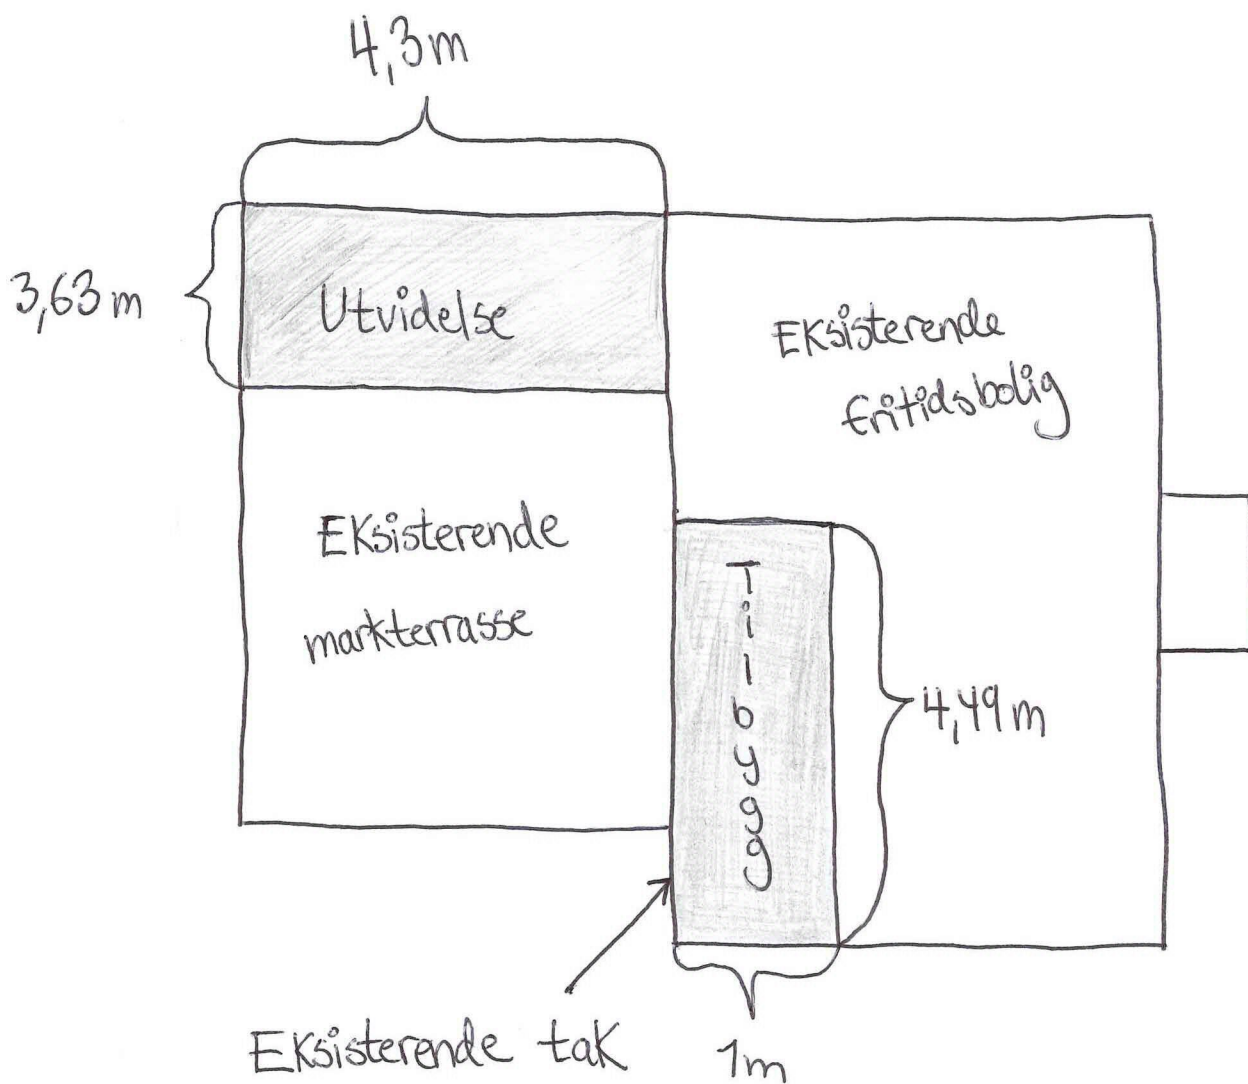 4,3m
3,63m
Utvidelse
Eksisterende
fritidsbolig
Eksisterende
markterrasse
Tilbygg
4,49m
Eksisterende tak
1m